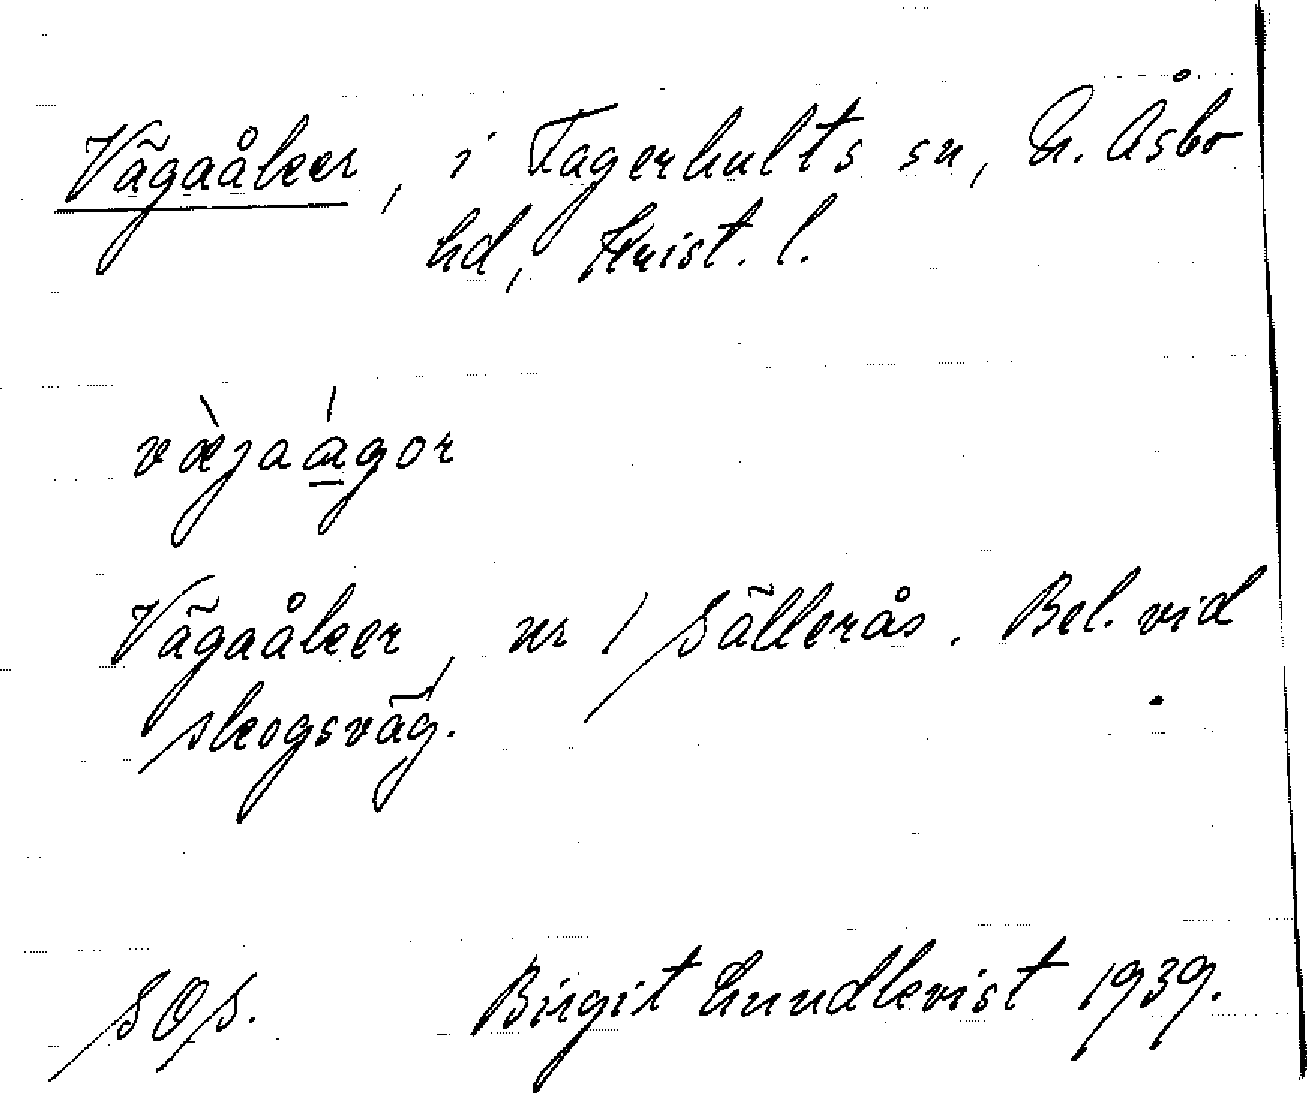 Vägaåker, i Fagerhults sn, N. Åsbo
hd, Krist. l.
væ̀jaágor
Vägaåker, nr 1 Sällerås. Bel. vid
skogsväg.
SOS. Birgit Lundkvist 1939.